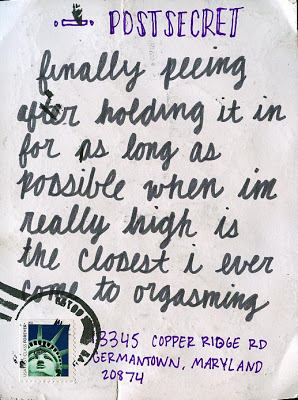 POSTSECRET
finally peeing
after holding it in
for as long as
possible when im
really high is
the closest i ever
come to orgasming
13345 COPPER RIDGE RD
GERMANTOWN, MARYLAND
20874